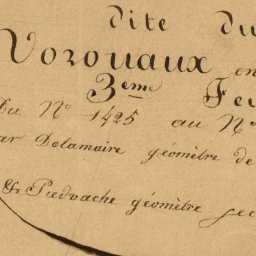 dite du
Vorouaux en
3eme Feu
Du No 1425 au No
ar Delamaire géomètre de
& Piedvache géomètre sec